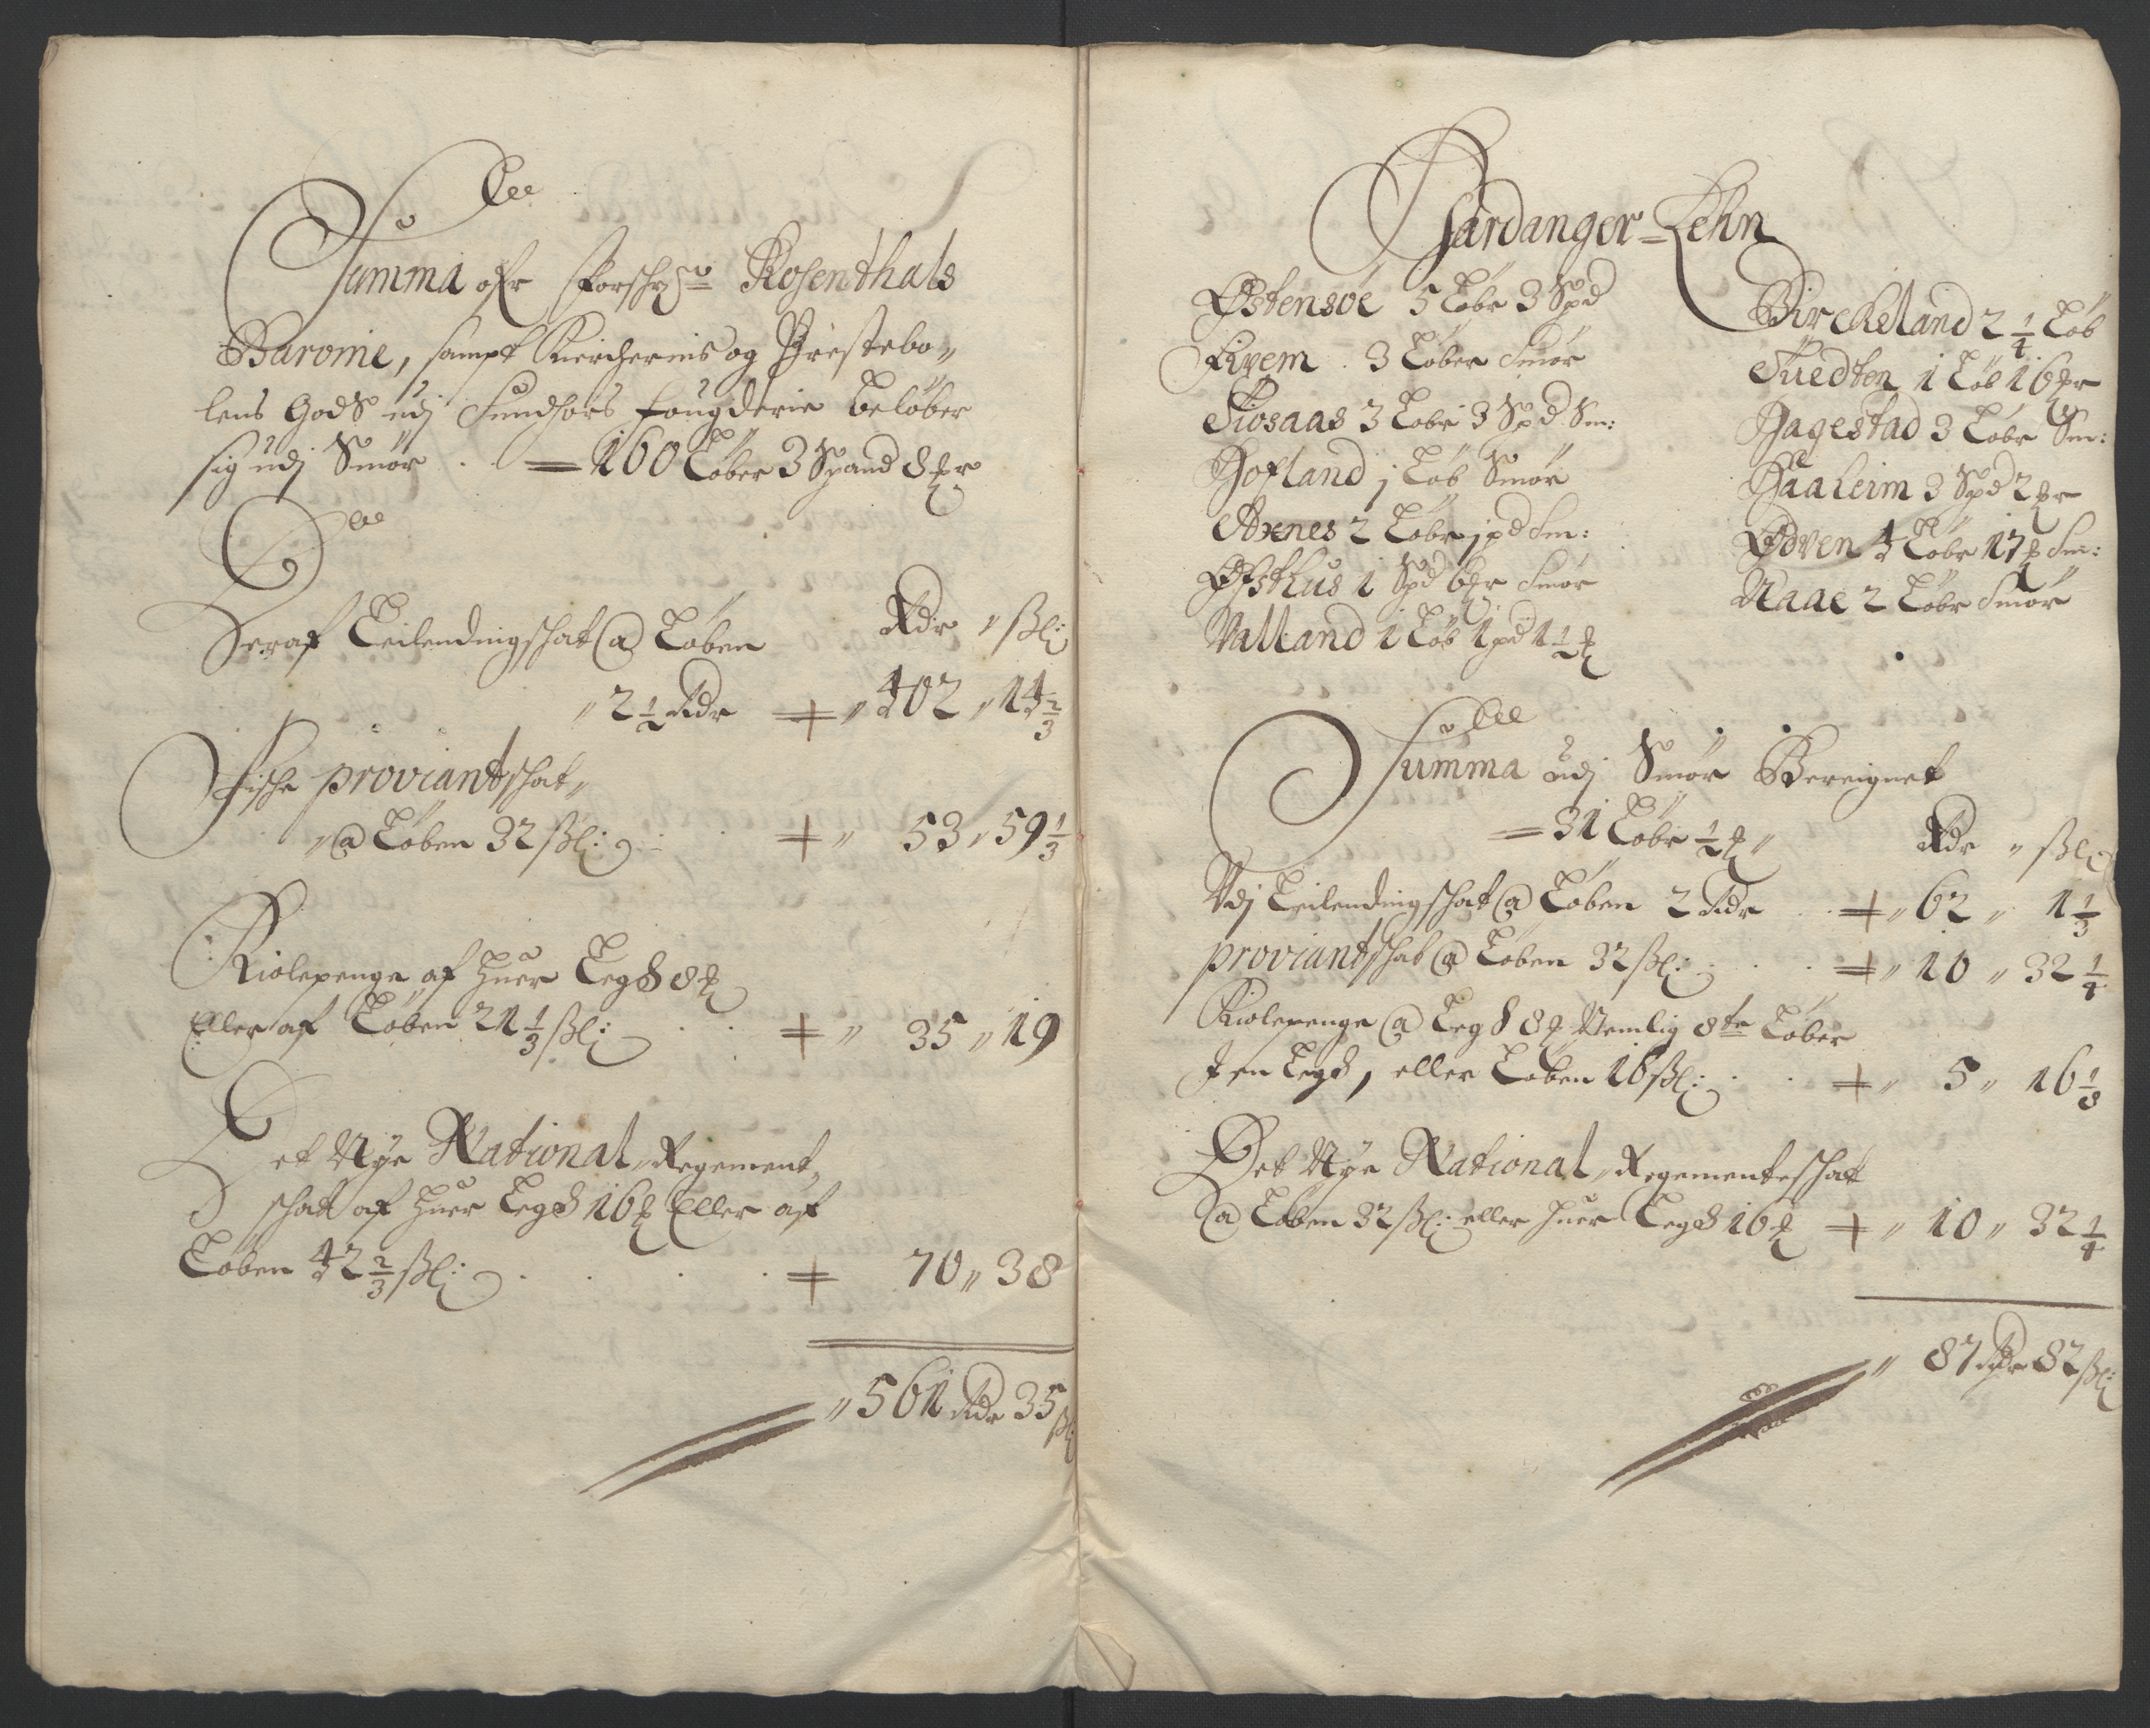 Summa ofr Forschr:ne Rosenthals
Baronie, sampt Kierchernis og Prestebo„
lens Gods udj Sundhors fougderie beløber
sig udj Smør . = 160 Løber 3 Spand 8 ℔r
Deraf Leilendingschat @ Løben Rdr „ ßl:
„ 2 1/2 Rdr + „ 402 „ 14 2/3
Fische proviantschat„
„ @ Løben 32 ßl: + „ 53 „ 59 1/3
Kiolepenge af huer Legd 8 ℔
Eller af Løben 21 1/3 ßl: + „ 35 „ 19
Det Nye National„Regement„
schat af huer Legd 16 ℔ Eller af
Løben 42 2/3 ßl: + 70 „ 38
„ 561 Rdr 35 ßl:
Hardanger=Lehn
Østensøe 5 Løbr 3 Spd
Fixem . 3 Løber Smør
Tiosaas 3 Løbr 3 Spd Sm:
Hofland j Løb Smør
Axnes 2 Løbr j pd Sm:
Øfsthus 1 Spd 6 ℔r Smør
Valland 1 Løb 1 pd 1 1/2 ℔
Birckeland 2 1/4 Løb
Tuedten 1 Løb 16 ℔r
Hagestad 3 Løbr Sm:
Haaheim 3 Spd 2 ℔r
Ødven 4 Løbr 17 ℔ Sm:
Naae 2 Løbr Smør
Summa udj Smør Bereignet
= 31 Løbr 1/2 ℔ „ Rdr „ ßl:
Udj Leilendingschat @ Løben 2 Rdr + „ 62 „ 1 1/3
proviantschat @ Løben 32 ßl: + „ 10 „ 32 1/4
Kiolepenge @ Legd 8 ℔ Nemlig 8te Løber
J en Legd, eller Løben 16 ßl: + „ 5 „ 16 1/8
Det Nye National„Regementeschat
@ Løben 32 ßl: eller huer Legd 16 ℔ + „ 10 „ 32 1/4
„ 87 Rdr 82 ßl: